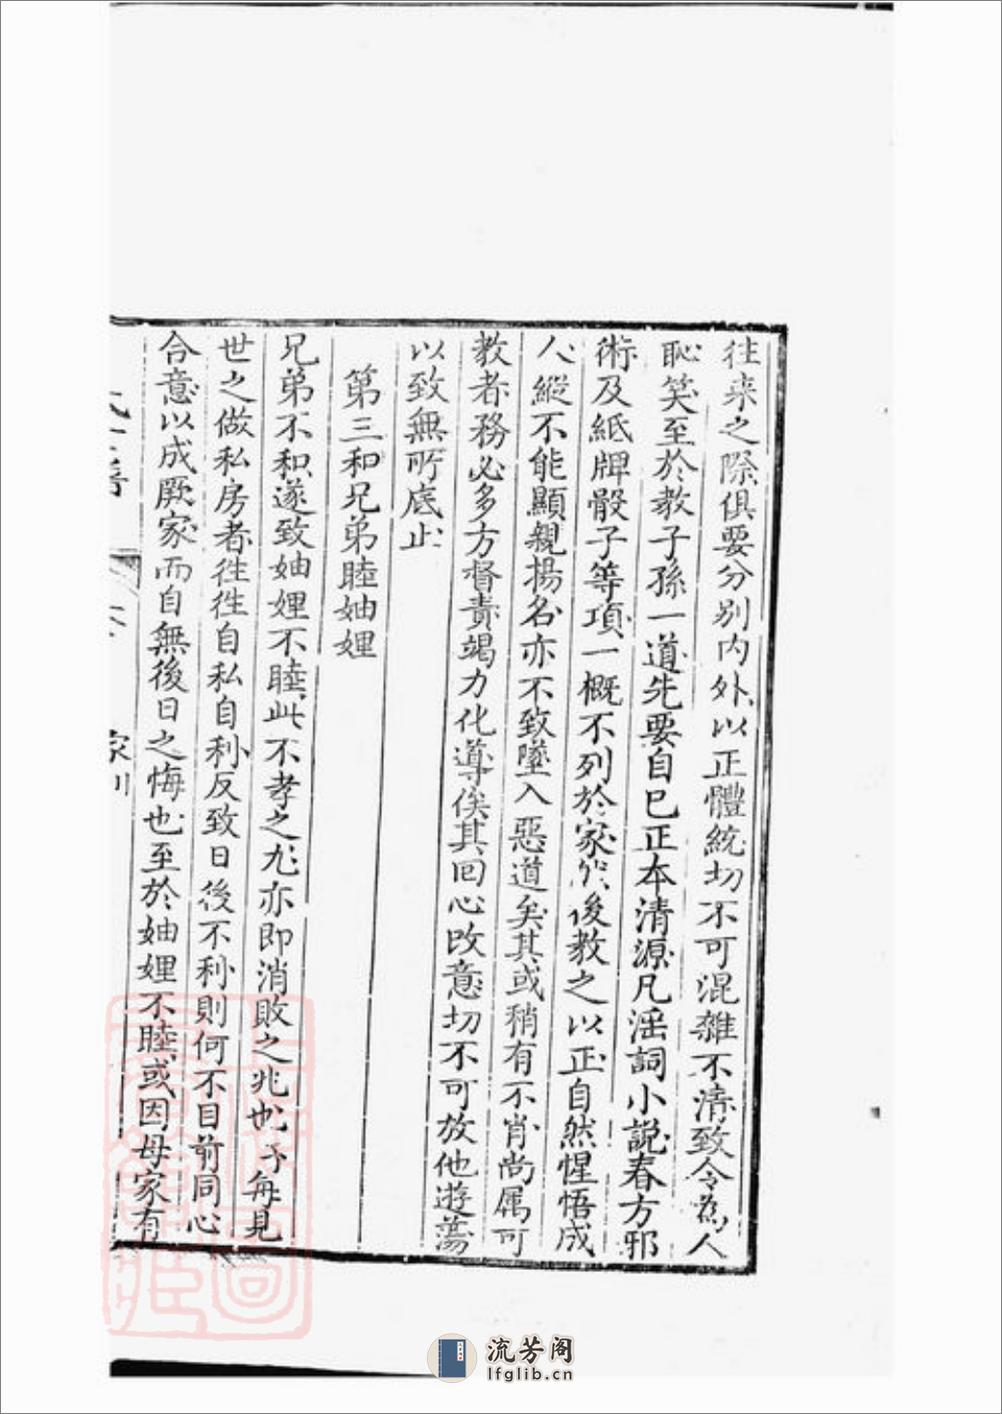 往来之際俱要分别内外以正體統切不可混雜不清致令為人
恥笑至於教子孫一道先要自已正本清源凡淫詞小説春方邪
術及紙牌骰子等項一概不列於家然後教之以正自然惺悟成
人縱不能顯親揚名亦不致墜入惡道矣其或稍有不肖尚属可
教者務必多方督責竭力化導俟其回心改意切不可放他遊蕩
以致無所底止
第三和兄弟睦妯娌
兄弟不和遂致妯娌不睦此不孝之尤亦即消敗之兆也予每見
世之做私房者徃徃自私自利反致日後不利則何不目前同心
合意以成厥家而自無後日之悔也至於妯娌不睦或因母家有
家訓
流芳阁
lfglib.cn